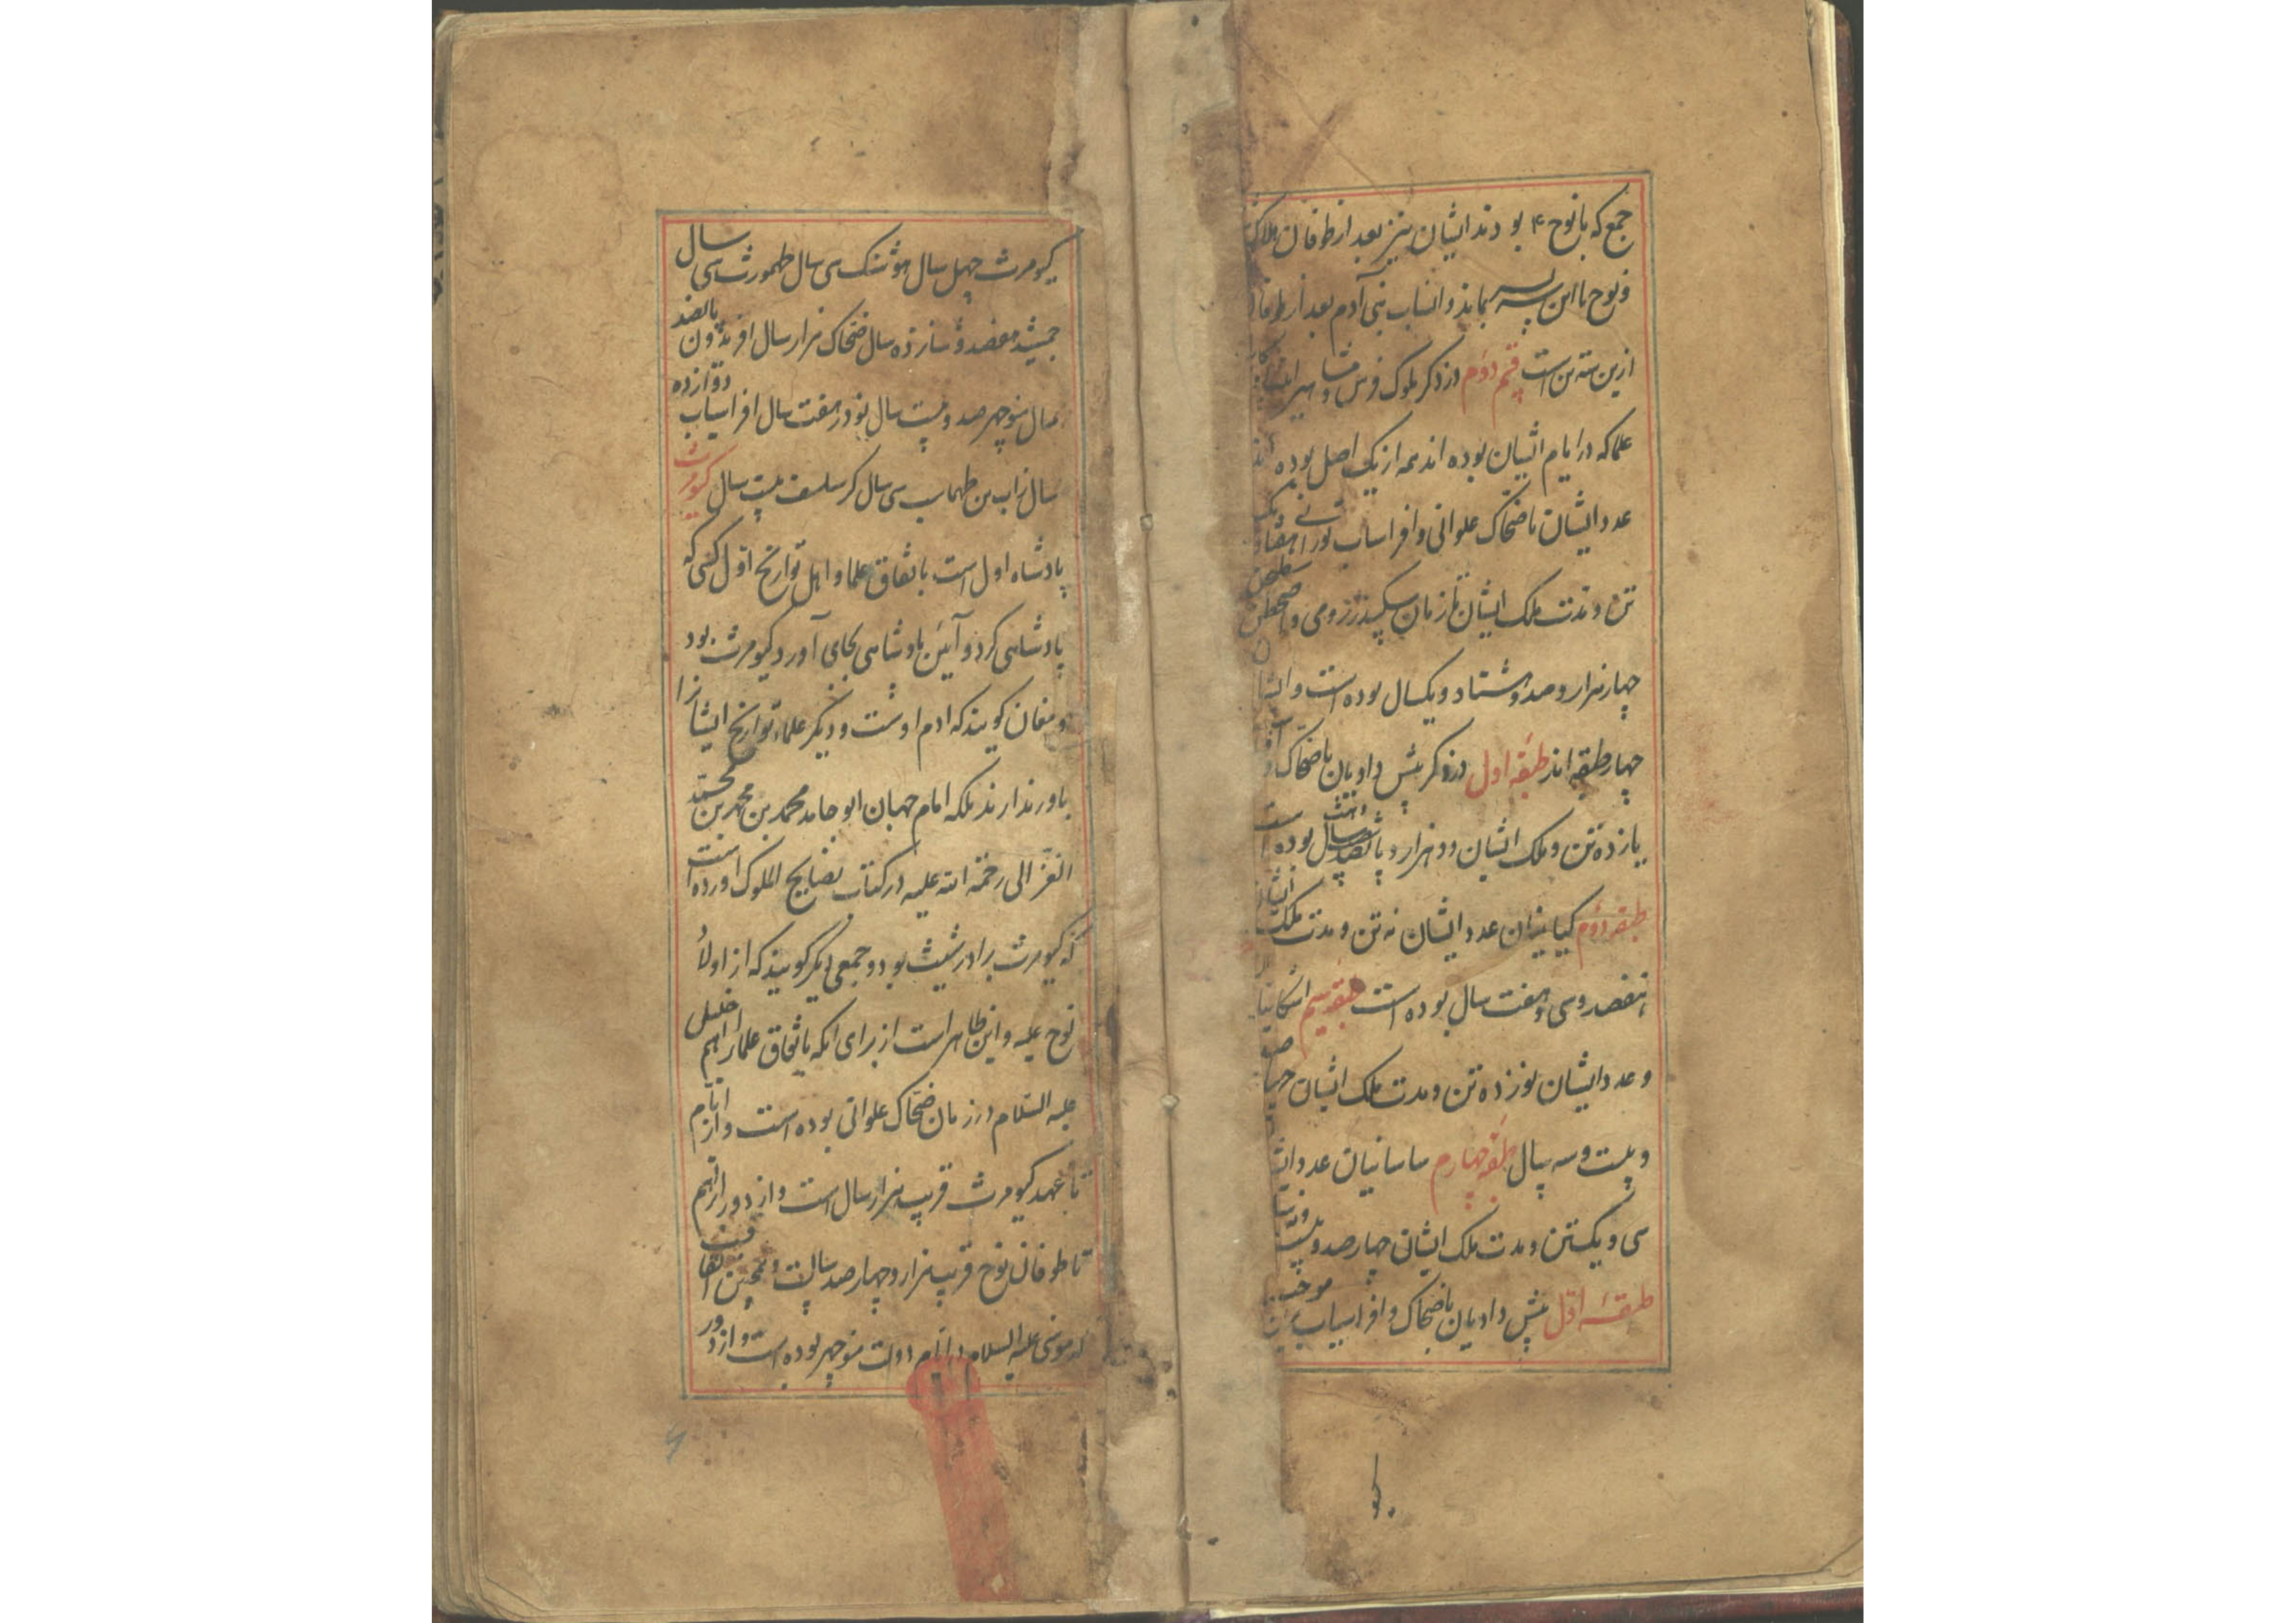 جمع که با نوح ۴ بودند ایشان نیز بعد از طوفان هلاک
و نوح با این سه پسر بماند و انساب بنی آدم بعد از طوفان
ازین سه تن است قسم دوم در ذکر ملوک فرس و مشاهیر
علما که در ایام ایشان بوده اند همه از یک اصل بوده اند
عدد ایشان با ضحاک علوانی و افراسیاب تورانی هفتاد و یک
تن و مدت ملک ایشان تا زمان سکندر رومی و
چهار هزار و صد و هشتاد و یکسال بوده است و ایشان
چهار طبقه اند طبقه اول در ذکر پیش دادیان با ضحاک و
یازده تن و ملک ایشان دو هزار و پانصد و هشت سال بوده است
طبقه دوم کیانیان عدد ایشان نه تن و مدت ملک ایشان
هفصد و سی و هفت سال بوده است طبقه سیم اشکانیان
و عدد ایشان نوزده تن و مدت ملک ایشان
و بیست و سه سال طبقه چهارم ساسانیان عدد ایشان
سی و یکتن و مدت ملک ایشان چهار صد و بیست و
طبقه اول پیش دادیان با ضحاک و افراسیاب برین موجب
کیومرث چهل سال هوشنک سی سال طهمورث سی سال
جمشید هفصد و شانزده سال ضحاک هزار سال افریدون پانصد
سال منوچهر صد و بیست سال نوذر هفت سال افراسیاب دوازده
سال زاب بن طهماسب سی سال کرساسف بیست سال کیومرث
پادشاه اول است باتفاق علما و اهل تواریخ اول کسی که
پادشاهی کرد و آئین پادشاهی بجای آورد کیومرث بود
و مغان کویند که ادم اوست و دیگر علماء تواریخ ایشانرا
باور ندارند بلکه امام جهان ابو حامد محمد بن محمد بن محمد
الغزالی رحمة الله علیه در کتاب نصایح الملوک اورده است
که کیومرث برادر شیث بود و جمعی دیگر کویند که از اولاد
نوح علیه و این ظاهر است از برای انکه باتفاق علما ابراهیم خلیل
علیه السلام در زمان ضحاک علوانی بوده است و از ایام
تا عهد کیومرث قریب هزار سال است و از دور ابراهیم
تا طوفان نوح قریب هزار و چهار صد سالست و همچنین اتفاقست
که موسی علیه السلام در ایام دولت منوچهر بوده است و از دور